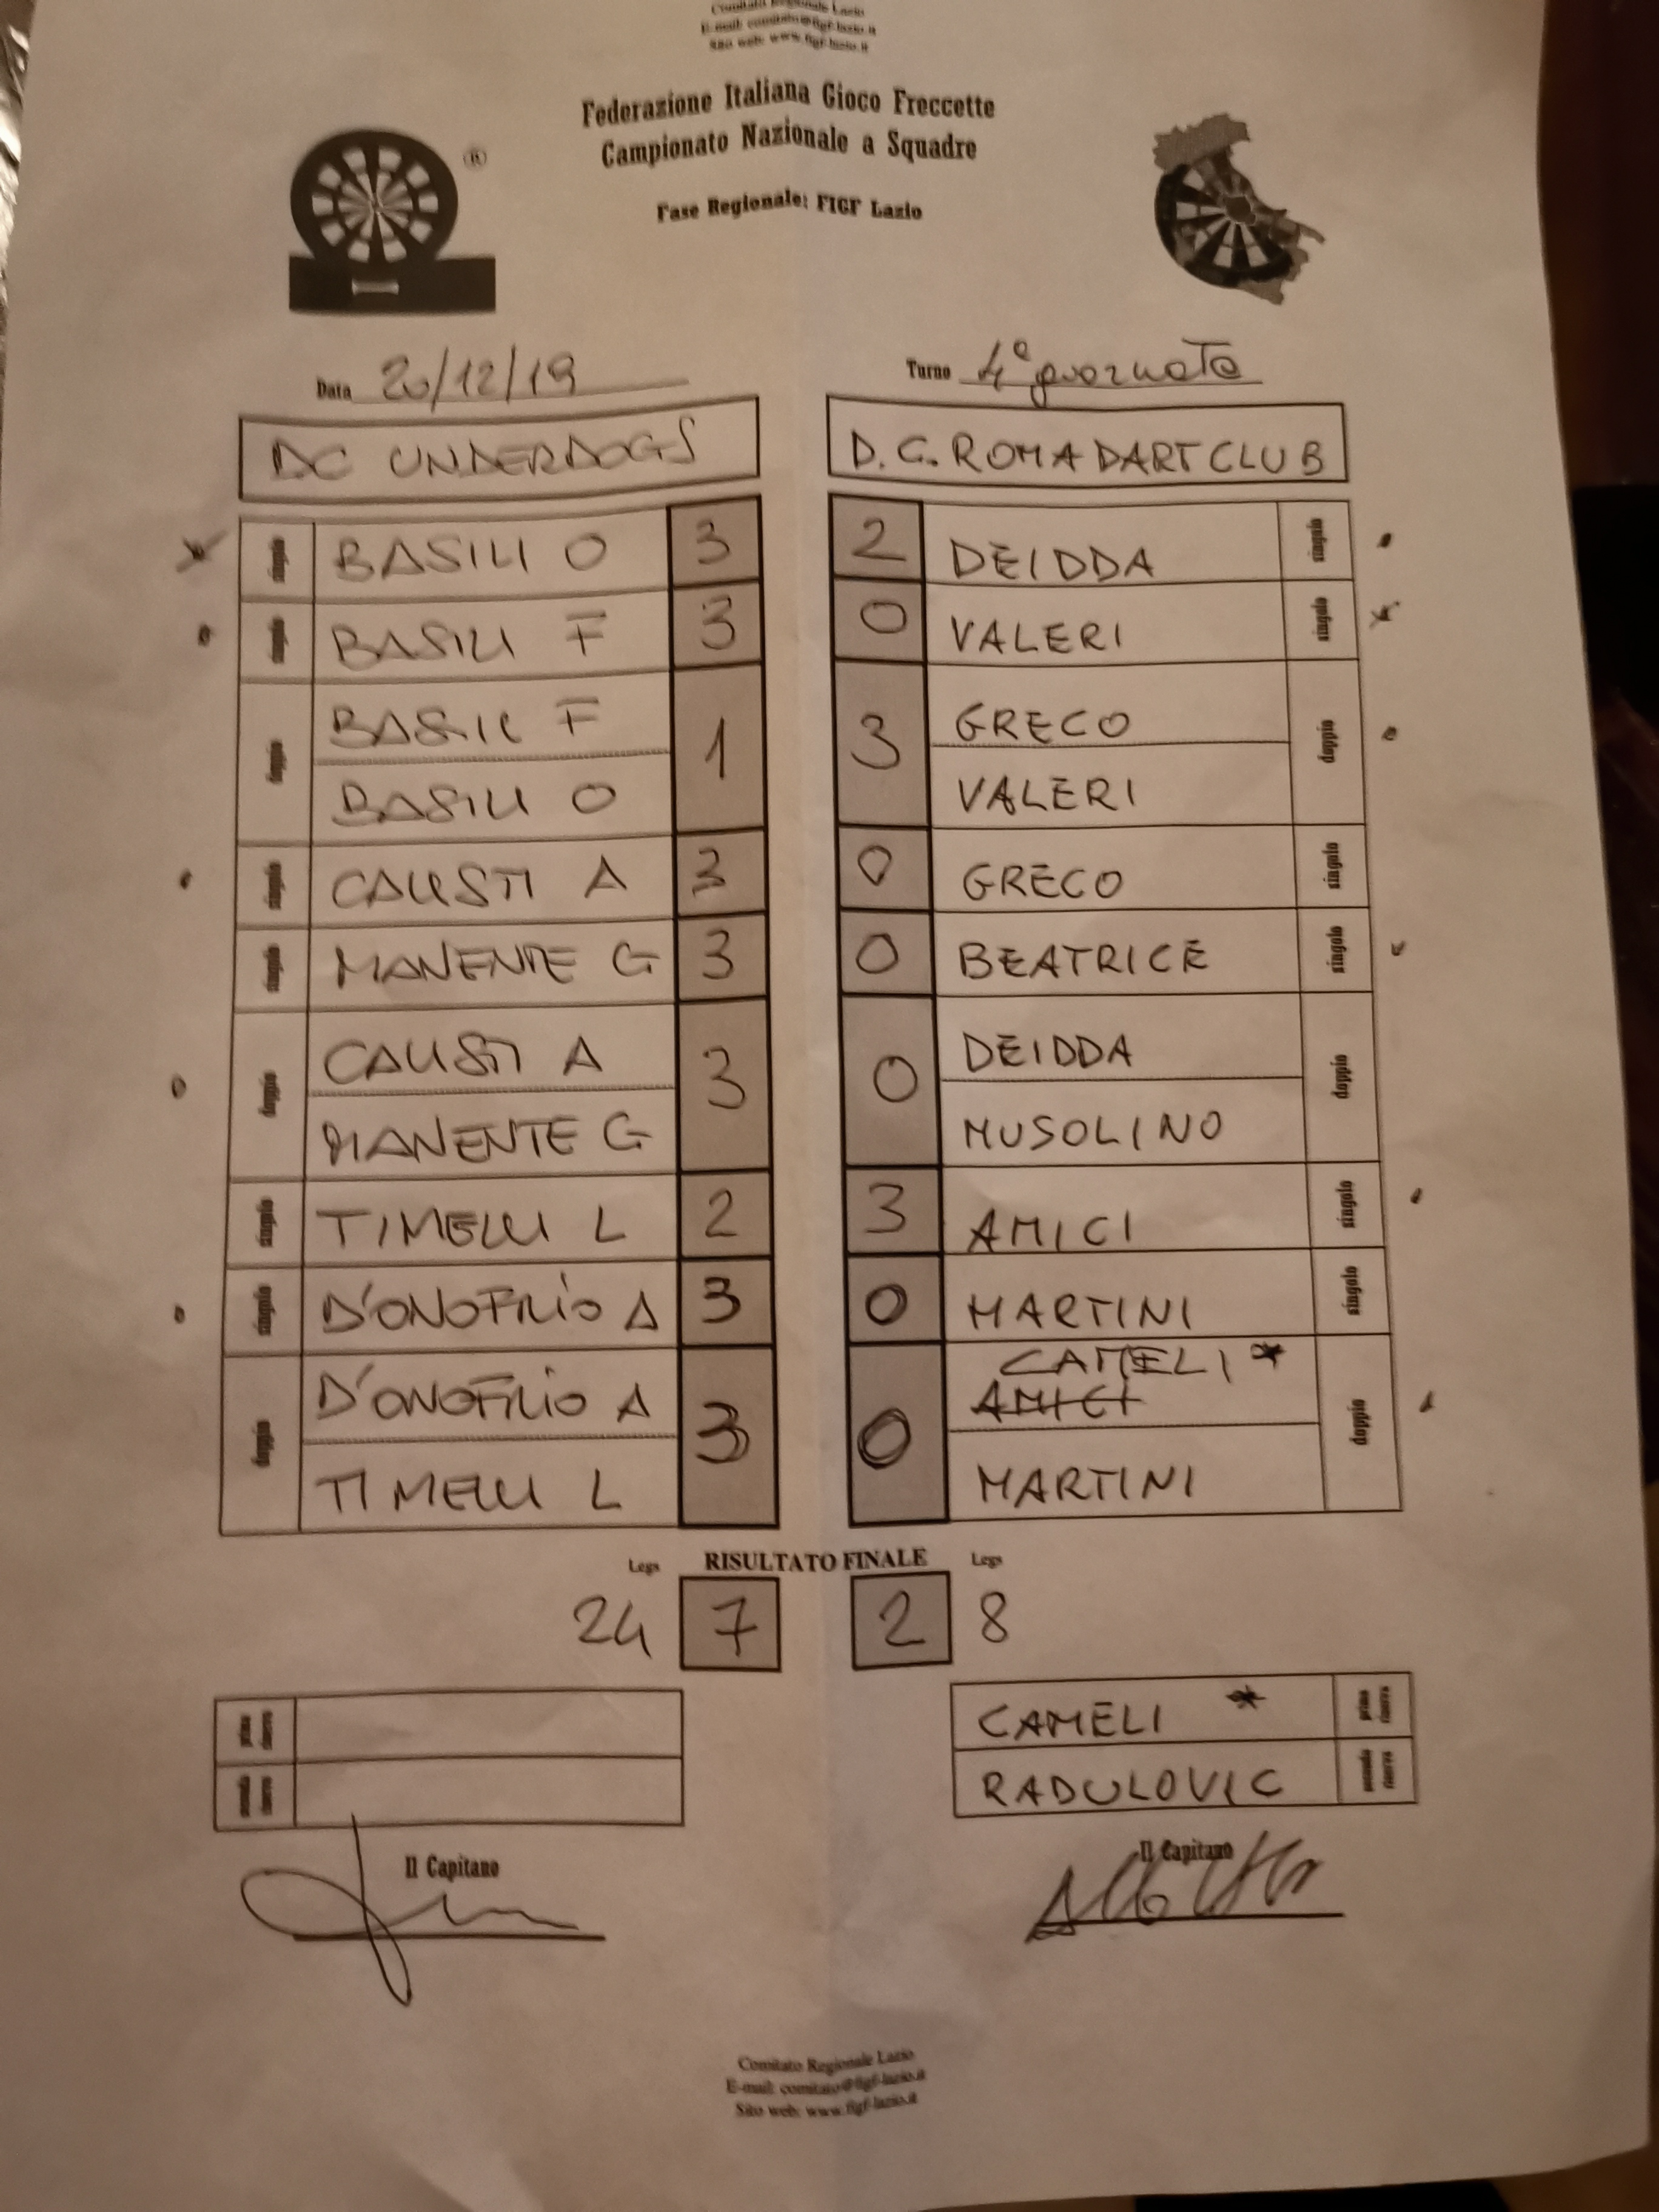 Comitato Regionale Lazio
E-mail: comitato@figf-lazio.it
Sito web: www.figf-lazio.it
Federazione Italiana Gioco Freccette
Campionato Nazionale a Squadre
Fase Regionale: FIGF Lazio
®
Data 20/12/19 Turno 4ª giornata
DC UNDERDOGS D.C. ROMA DART CLUB
singolo BASILI O 3 2 DEIDDA singolo
singolo BASILI F 3 0 VALERI singolo
doppio BASILI F 1 3 GRECO doppio
BASILI O VALERI
singolo CAUSTI A 3 0 GRECO singolo
singolo MANENTE G 3 0 BEATRICE singolo
doppio CAUSTI A 3 0 DEIDDA doppio
MANENTE G MUSOLINO
singolo TIMELLI L 2 3 AMICI singolo
singolo D'ONOFRIO A 3 0 MARTINI singolo
CAMELI *
doppio D'ONOFRIO A 3 0 AMICI doppio
TIMELLI L MARTINI
Legs RISULTATO FINALE Legs
24 7 2 8
prima riserva CAMELI * prima riserva
seconda riserva RADULOVIC seconda riserva
Il Capitano Il Capitano
Comitato Regionale Lazio
E-mail: comitato@figf-lazio.it
Sito web: www.figf-lazio.it